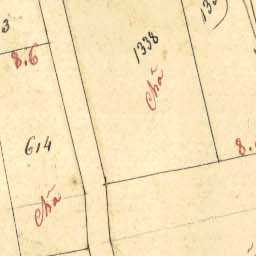 3
8.6
1338
Chã
614
Chã
8.